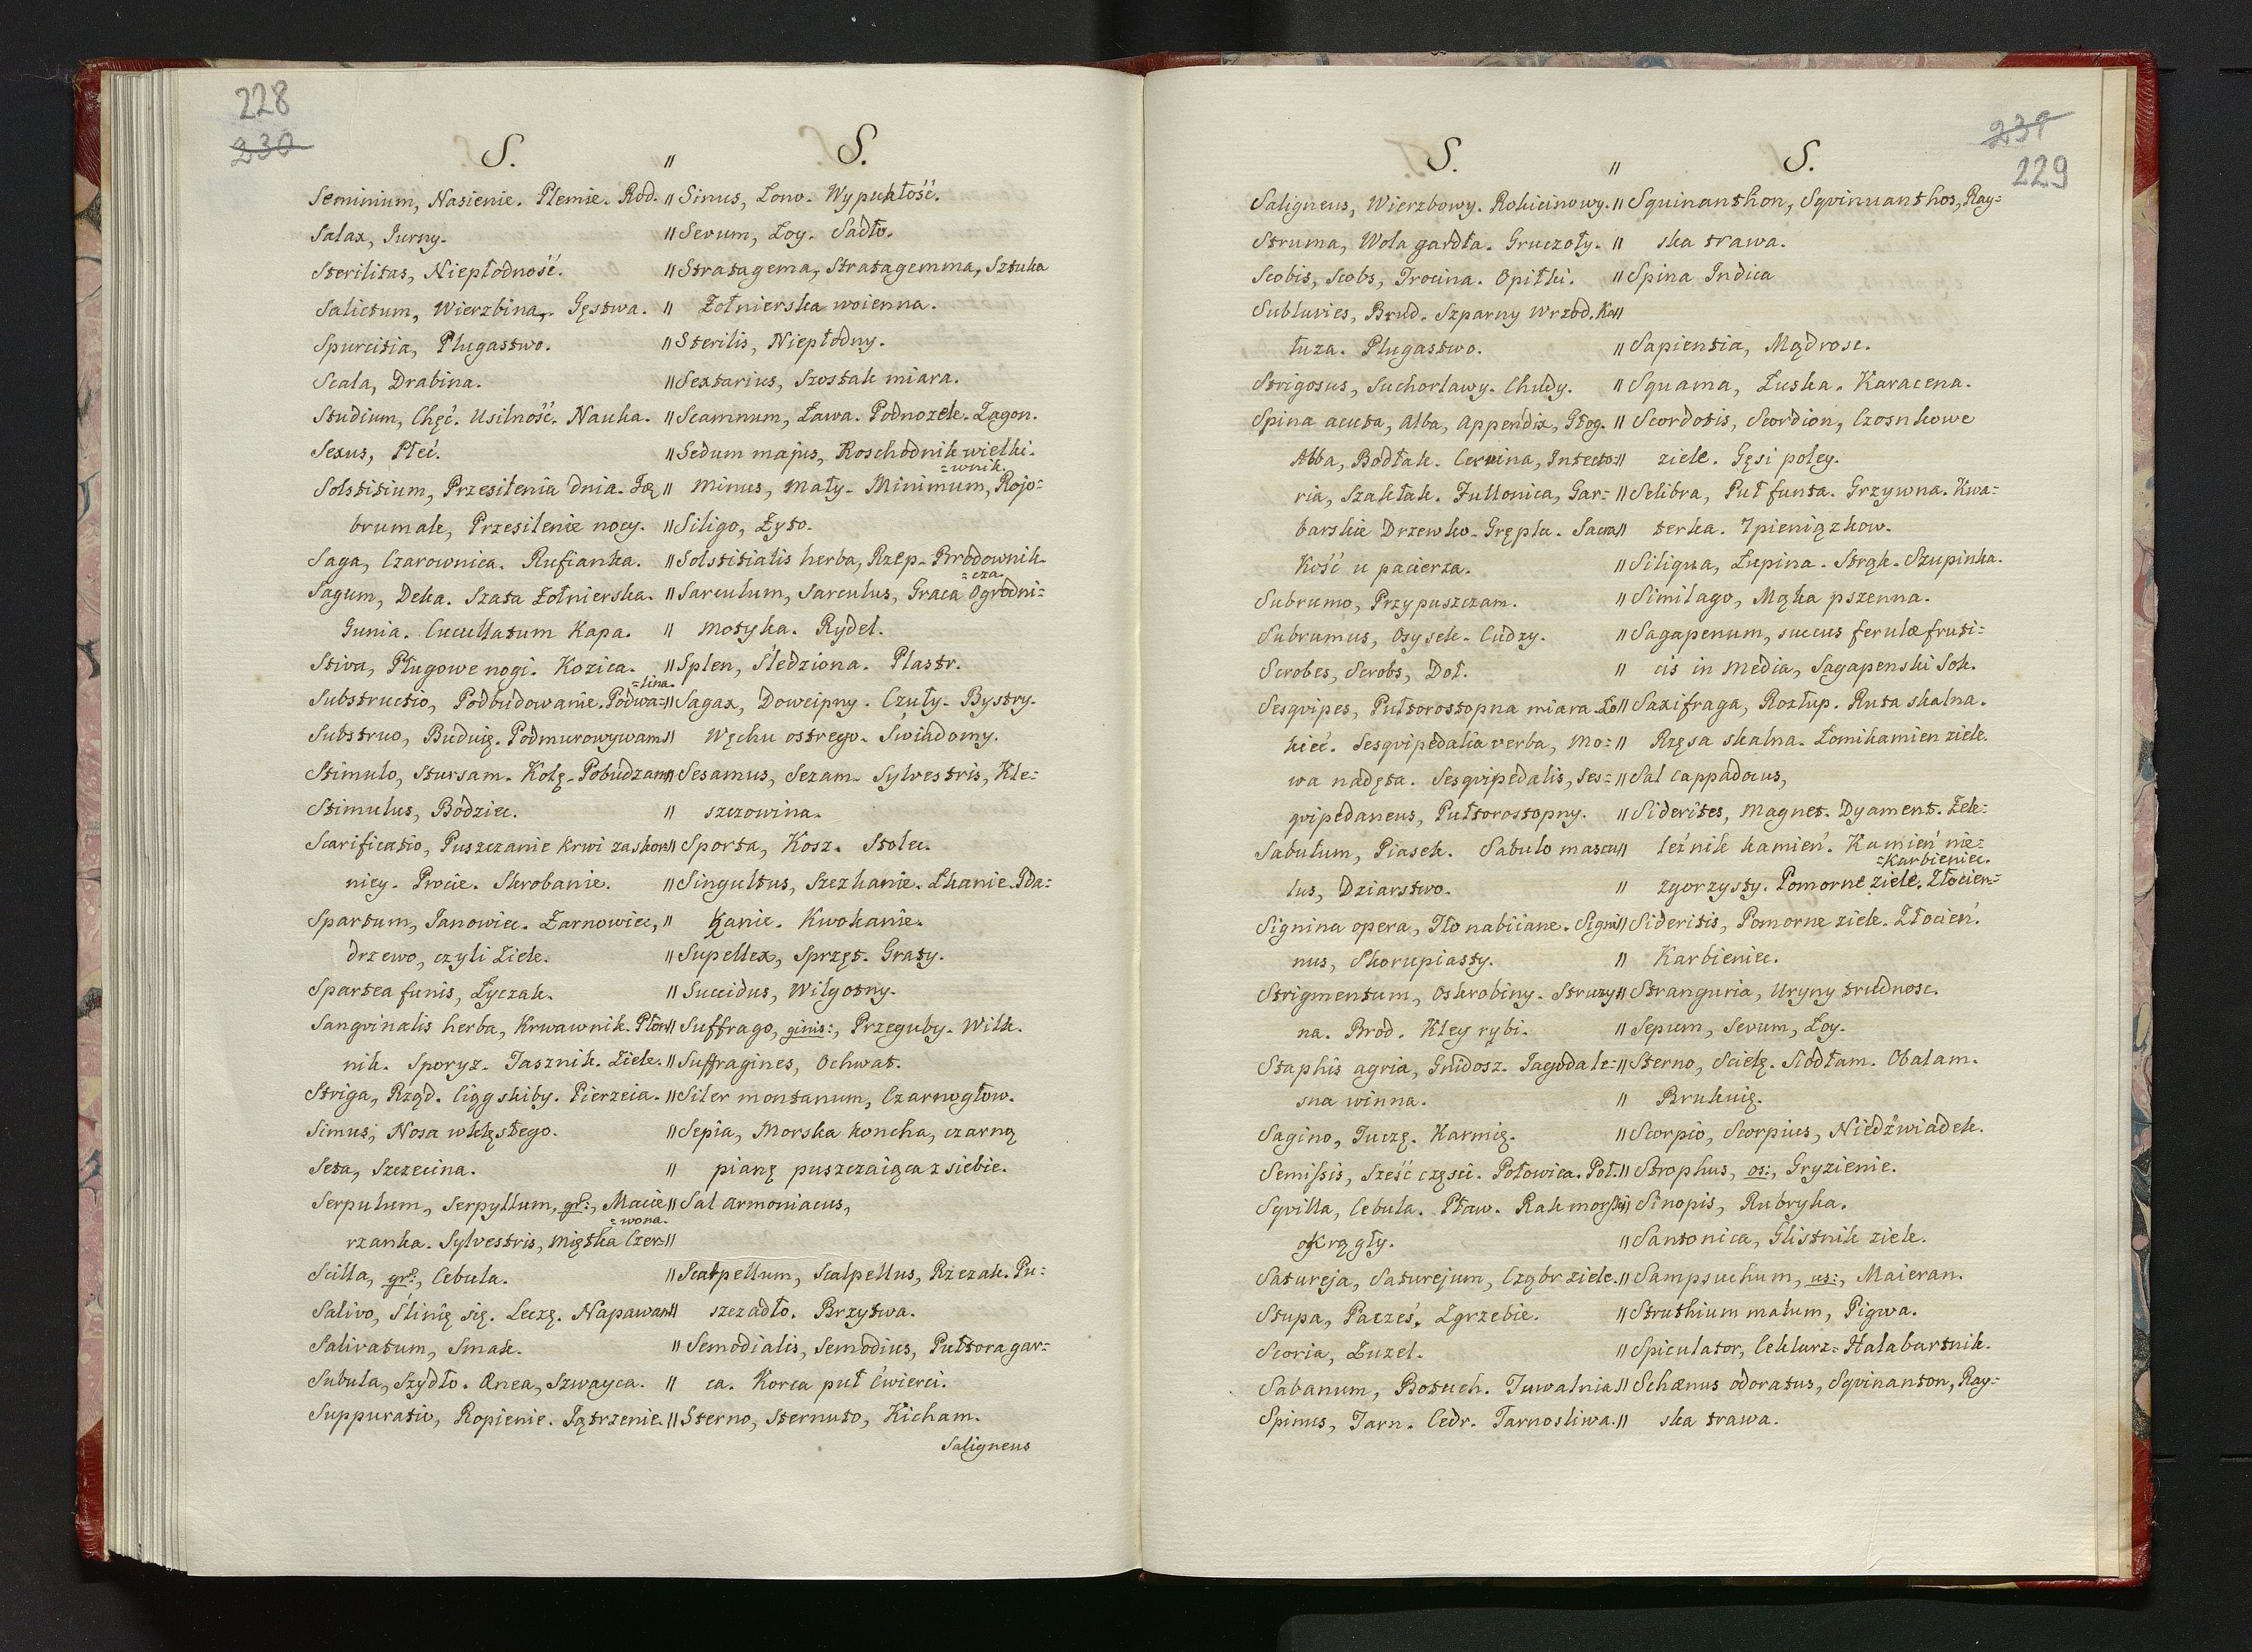 228
230
S. // S.
Seminium, Nasienie. Plemie. Rod. //
Salax, Jurny. //
Sterilitas, Niepłodność. //
Salictum, Wierzbina. Gęstwa. //
Spurcitia, Plugastwo. //
Scala, Drabina. //
Studium, Chęć. Usilność. Nauka. //
Sexus, Płeć. //
Solstitium, Przesilenia dnia. //
brumale, Przesilenie nocy. //
Saga, Czarownica. Rufianka. //
Sagum, Deka. Szata Żołnierska. //
Gunia. Cucullatum Kapa. //
Stiva, Pługowe nogi. Kozica. //
=lina.
Substructio, Podbudowanie. Podwa= //
Substruo, Buduię. Podmurowywam //
Stimulo, Stursam. Kolę. Pobudzam //
Stimulus, Bodziec. //
Scarificatio, Puszczanie krwi zaskor //
niey. Procie. Skrobanie. //
Spartum, Janowiec. Żarnowiec, //
drzewo, czyli Ziele. //
Spartea funis, Łyczak. //
Sangvinalis herba, Krwawnik. Płon //
nik. Sporyz. Tasznik. Ziele. //
Striga, Rząd. Ciąg skiby. Pierzeia. //
Simus, Nosa wklęsłego. //
Seta, Szczecina. //
Serpulum, Serpyllum, gr:, Macie //
=wona.
rzanka. Sylvestris, Miętka Czer= //
Scilla, gr:, Cebula. //
Salivo, Ślinię się. Leczę. Napawam //
Salivatum, Smak. //
Subula, Szydło. Ænea, Szwayca. //
Suppuratio, Ropienie. Jątrzenie. //
Sinus, Łono. Wypukłość.
Sevum, Łoy. Sadło.
Stratagema, Stratagemma, Sztuka
Żołnierska woienna.
Sterilis, Niepłodny.
Sextarius, Szostak miara.
Scamnum, Ława. Podnozek. Zagon.
Sedum majus, Roschodnik wielki.
=wnik.
Minus, Mały. Minimum, Rojo=
Siligo, Żyto.
Solstitialis herba, Rzep. Brodownik.
=cza.
Sarculum, Sarculus, Graca Ogrodni=
Motyka. Rydel.
Splen, Śledziona. Plastr.
Sagax, Dowcipny. Czuły. Bystry.
Węchu ostrego. Świadomy.
Sesamus, Sezam. Sylvestris, Kle=
szczowina.
Sporta, Kosz. Stolec.
Singultus, Szczkanie. Łkanie. Gda=
kanie. Kwokanie.
Supellex, Sprzęt. Graty.
Succidus, Wilgotny.
Suffrago, ginis:, Przeguby. Wilk.
Suffragines, Ochwat.
Siler montanum, Czarnogłow.
Sepia, Morska koncha, czarną
pianę puszczaiąca z siebie.
Sal armoniacus,
Scalpellum, Scalpellus, Rzezak. Pu=
szczadło. Brzytwa.
Semodialis, Semodius, Pułtora gar=
ca. Korca puł ćwierci.
Sterno, Sternuto, Kicham.
Saligneus
231
229
S. // S.
Saligneus, Wierzbowy. Rokicinowy. //
Struma, Wola gardła. Gruczoły. //
Scobis, Scobs, Trocina. Opiłki. //
Subluvies, Brud. Szparny Wrzod. Ka //
łuza. Plugastwo. //
Strigosus, Suchorlawy. Chudy. //
Spina acuta, Alba, Appendix, Głog. //
Abba, Bodłak. Cervina, Infecto= //
ria, Szakłak. Fullonica, Gar= //
barskie Drzewko. Grępla. Sacra //
Kość u pacierza. //
Subrumo, Przypuszczam. //
Subrumus, Osysek. Cudzy. //
Scrobes, Scrobs, Doł. //
Sesqvipes, Pułtorostopna miara. Ło //
kieć. Sesqvipedalia verba, Mo= //
wa nadęta. Sesqvipedalis, Ses= //
qvipedaneus, Pułtorostopny. //
Sabulum, Piasek. Sabulo mascu //
lus, Dziarstwo. //
Signina opera, Tło nabiiane. Signi //
nus, Skorupiasty. //
Strigmentum, Oskrobiny. Struzy //
na. Brod. Kley rybi. //
Staphis agria, Gnidosz. Jagoda le= //
sna winna. //
Sagino, Tuczę. Karmię. //
Semissis, Sześć części. Połowica. Poł. //
Sqvilla, Cebula. Pław. Rak morski //
okrągły. //
Satureja, Saturejum, Cząbr ziele. //
Stupa, Pacześ. Zgrzebie. //
Scoria, Zuzel. //
Sabanum, Botuch. Tuwalnia. //
Spinus, Tarn. Cedr. Tarnosliwa. //
Squinanthon, Sqvinnanthos, Ray=
ska trawa.
Spina Indica
Sapientia, Mądrosc.
Squama, Łuska. Karacena.
Scordotis, Scordion, Czosnkowe
ziele. Gęsi poley.
Selibra, Puł funta. Grzywna. Kwa=
terka. 7 pieniązkow.
Siliqua, Łupina. Strąk. Szupinka.
Similago, Mąka pszenna.
Sagapenum, succus ferulæ fruti=
cis in Media, Sagapenski Sok.
Saxifraga, Rozłup. Ruta skalna.
Rzęsa skalna. Łomikamien ziele.
Sal cappadocus,
Siderites, Magnet. Dyament. Żele=
leźnik kamień. Kamień nie=
=Karbieniec.
zgorzysty. Pomorne ziele. Złocien=
Sideritis, Pomorne ziele. Złocień.
Karbieniec.
Stranguria, Uryny trudnosc.
Sepum, Sevum, Łoy.
Sterno, Scielę. Siodłam. Obalam.
Brukuię.
Scorpio, Scorpius, Niedźwiadek.
Strophus, os:, Gryzienie.
Sinopis, Rubryka.
Santonica, Glistnik ziele.
Sampsuchum, us:, Maieran.
Struthium malum, Pigwa.
Spiculator, Ceklarz. Halabartnik.
Schænus odoratus, Sqvinanton, Ray=
ska trawa.